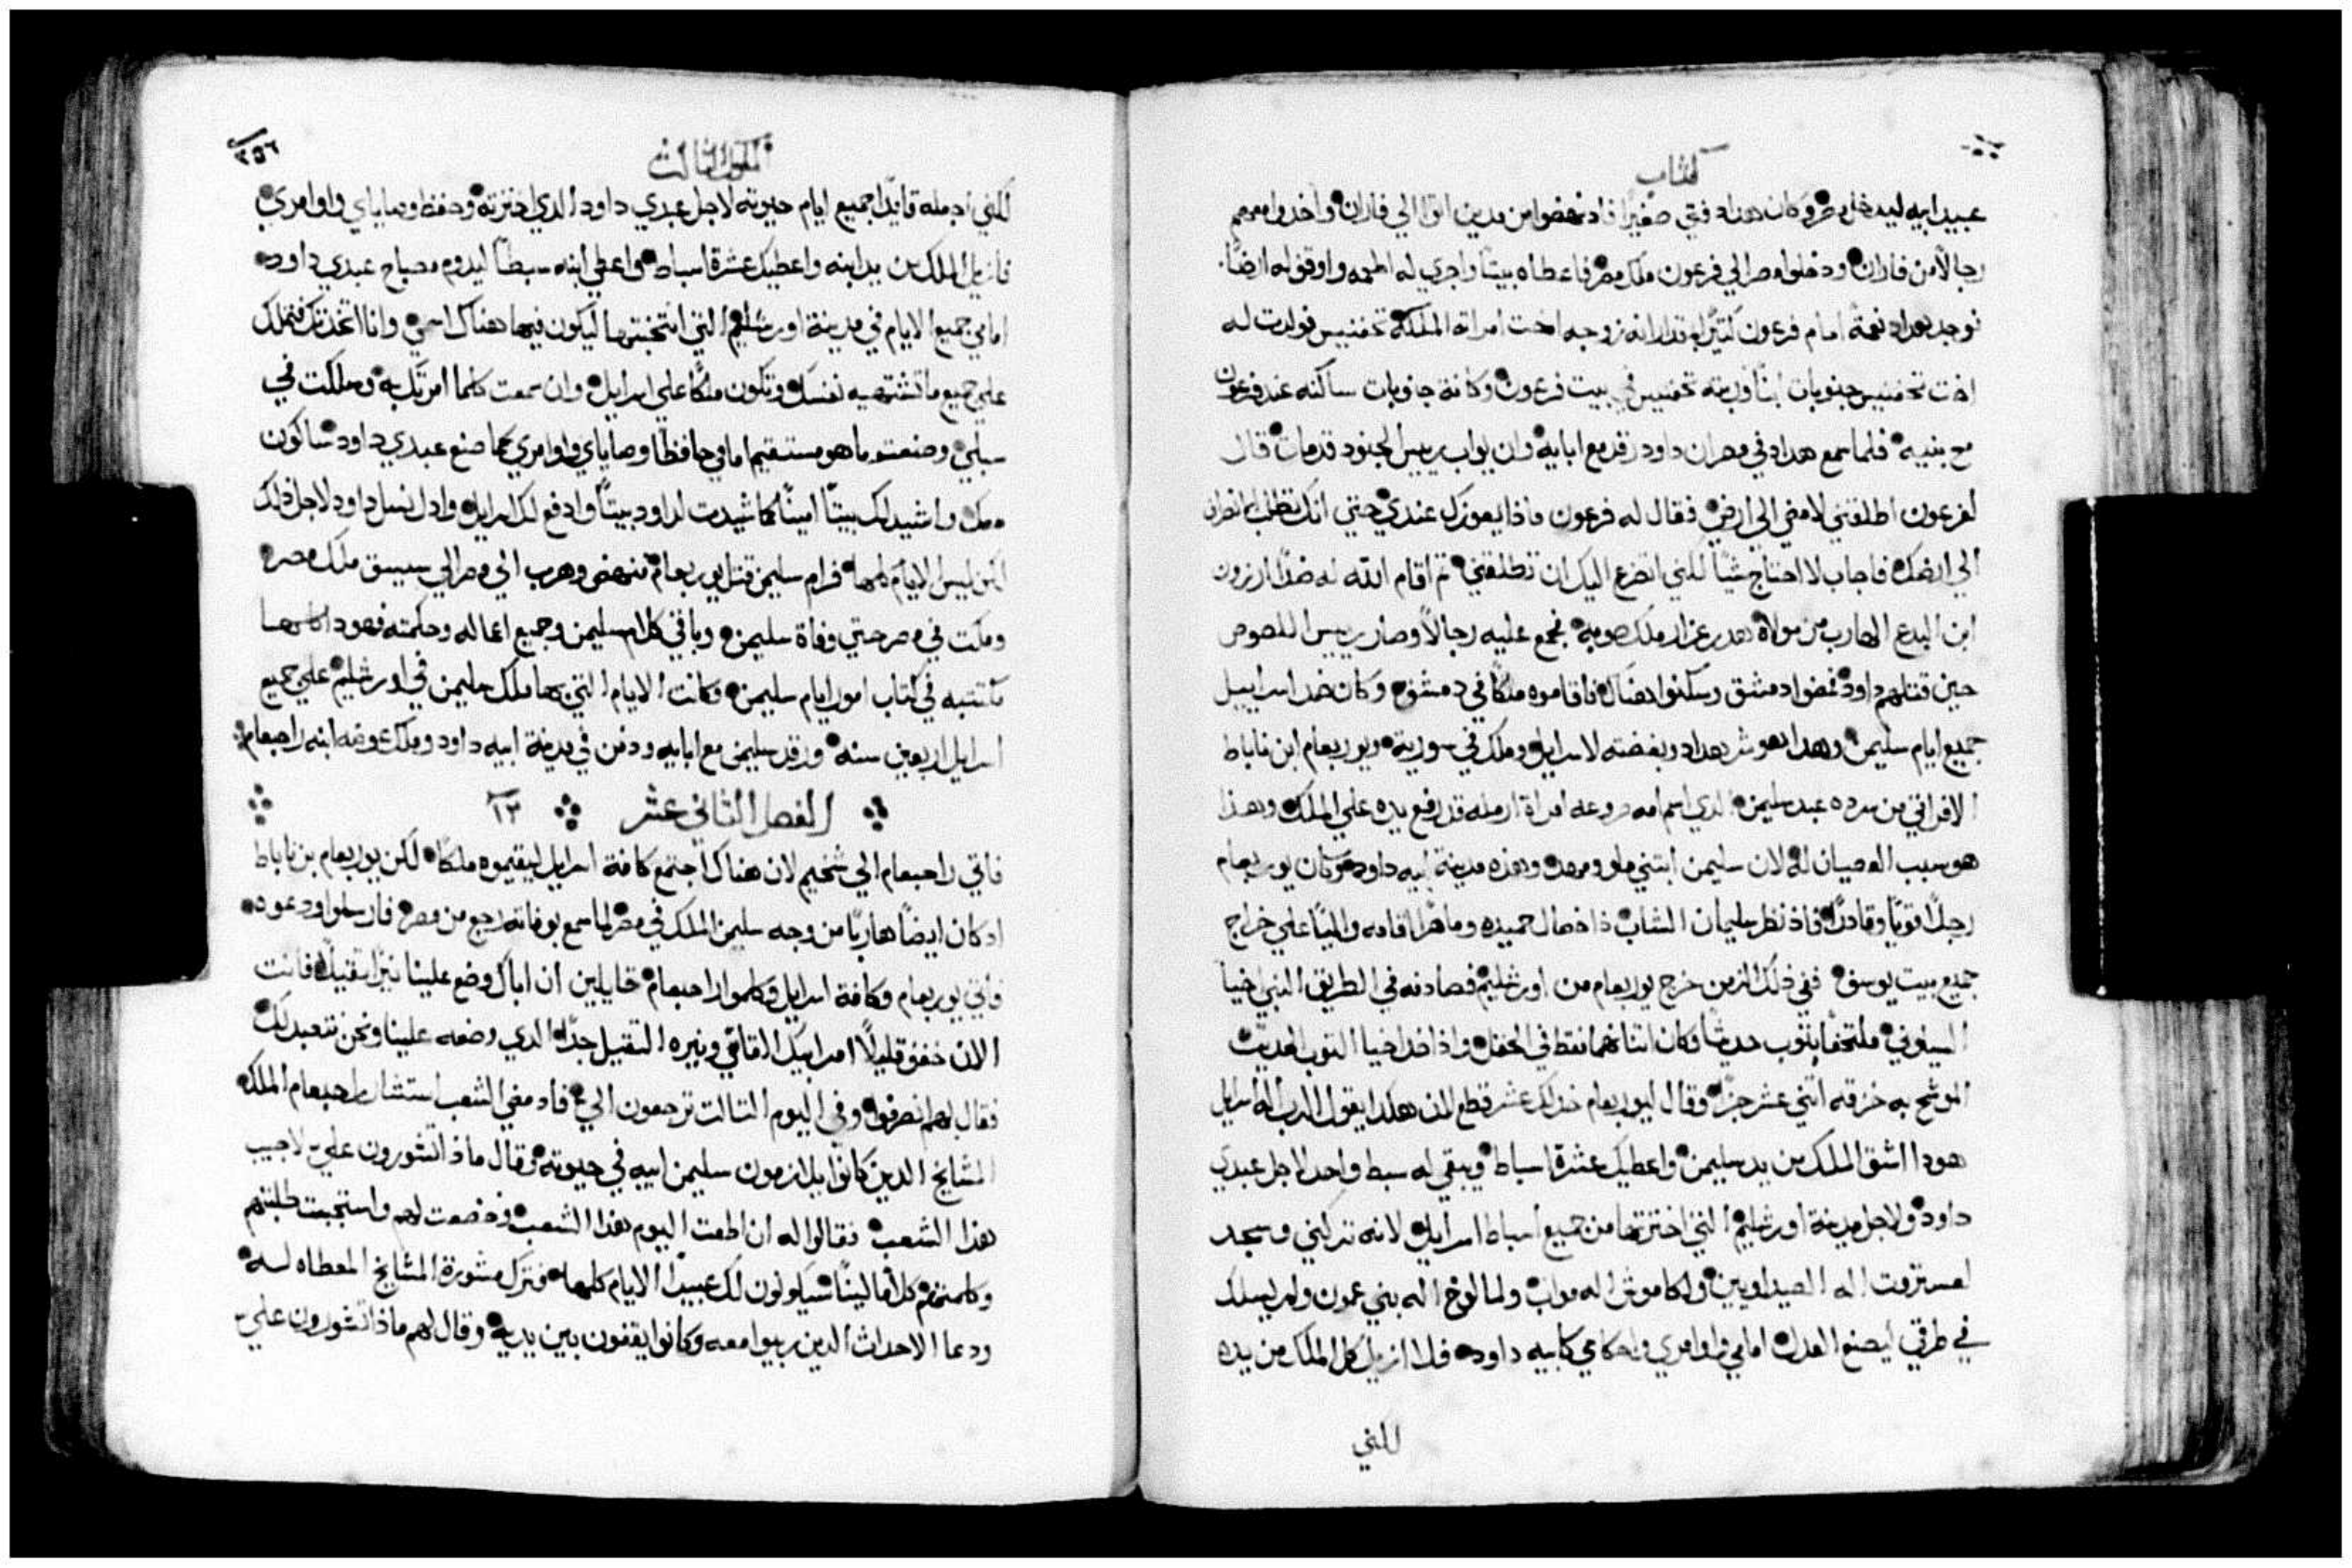 كتاب
عبيد ابيه ليدخل مصر وكان هداد فتي صغيرًا فاد نهضوا من مدين اتوا الي فاران واخدوا معهم
رجالًا من فاران ودخلوا مصر الي فرعون ملك مصر فاعطاه بيتًا واجري له اطعمه واوقف له ارضًا
فوجد هداد نعمةً امام فرعون كثيرًا بمقدار انه زوجه اخت امراته الملكة تحفنيس فولدت له
اخت تحفنيس جنوبات ابنًا وربته تحفنيس في بيت فرعون وكانة جنوبات ساكنه عند فرعون
مع بنيه فلما سمع هداد في مصر ان داود رقد مع ابايه وان يواب رييس الجنود قد مات قال
لفرعون اطلقني لامضي الي ارضي فقال له فرعون ماذا يعوزك عندي حتي انك تطلب
الي ارضك فاجاب لا احتاج شيًا لكني اتضرع اليك ان تطلقني ثم اقام الله له ضدًا ارزون
ابن اليدع الهارب من مولاه هدرعزار ملك صوبه فجمع عليه رجالًا وصار رييس اللصوص
حين قتلهم داود فمضوا دمشق وسكنوا هناك فاقاموه ملكًا في دمشق وكان ضد اسراييل
جميع ايام سليمن وهدا هو شر هداد وبغضته لاسرايل وملك في سورية ويوربعام ابن ناباط
الافراتي من سرده عبد سليمن الدي اسم امه صروعه امراة ارمله قد رفع يده علي الملك وهذا
هو سبب العصيان له لان سليمن ابتني ملو وهده مدينة ابيه داود وكان يوربعام
رجلًا قويًا وقادرًا فاذ نظر سليمان الشاب ذا خصال حميده وماهرًا اقامه واليًا علي خراج
جميع بيت يوسف ففي ذلك الزمن خرج يوربعام من اورشليم فصادفه في الطريق النبي اخيا
السيلوني ملتحفًا بثوب حديثًا وكان اثناهما فقط في الحقل واذ اخد اخيا الثوب الحديث
الموشح به خزقه اثني عشر جزًا وقال ليوربعام خد لك عشر قطع لان هكدا يقول الرب اله اسرايل
هودا اشق الملك من يد سليمن واعطيك عشرة اسباط ويبقي له سبط واحد لاجل عبدي
داود ولاجل مدينة اورشليم التي اخترتها من جميع اسباط اسرايل لانه تركني وسجد
لعستروت اله الصيداويين ولكاموش اله مواب ولمالوخ اله بني عمون ولم يسلك
في طرقي ليصنع العدل امامي واوامري واحكامي كابيه داود فلا ازيل كل الملك من يده
لكني
الملوك الثالث
٢٥٦
لكني اجعله قايدًا جميع ايام حيوته لاجل عبدي داود الدي اخترته وحفظ وصاياي واوامري
فازيل الملك من يد ابنه واعطيك عشرة اسباط واعطي ابنه سبطًا ليدوم مصباح عبدي داود
امامي جميع الايام في مدينة اورشليم التي انتخبتها ليكون فيها هناك اسمي وانا اتخدتك فتملك
علي جميع ما تشتهيه نفسك وتكون ملكًا علي اسرايل وان سمعت كلما امرتك به وسلكت في
سبلي وصنعت ما هو مستقيم امامي حافظًا وصاياي واوامري كما صنع عبدي داود ساكون
معك واشيد لك بيتًا امينًا كما شيدت لداود بيتًا وادفع لك اسرايل وادل نسل داود لاجل ذلك
لكن ليس الايام كلها فرام سليمن قتل يوربعام فنهض وهرب الي مصر الي سيسق ملك مصر
ومكت في مصر حتي وفاة سليمن وباقي كلام سليمن وجميع اعماله وحكمته فهودا كلها
مكتتبه في كتاب امور ايام سليمن وكانت الايام التي بها ملك سليمن في اورشليم علي جميع
اسرايل اربعين سنه ورقد سليمن مع ابايه ودفن في مدينة ابيه داود وملك عوضه ابنه راحبعام
الفصل الثاني عشر ١٢
فاتي راحبعام الي شخيم لان هناك اجتمع كافة اسرايل ليقيموه ملكًا لكن يوربعام بن ناباط
اد كان ايضًا هاربًا من وجه سليمن الملك في مصر لما سمع بوفاته رجع من مصر فارسلوا ودعوه
فاتي يوربعام وكافة اسرايل وكلموا راحبعام قايلين ان اباك وضع علينا نيرًا ثقيلًا فانت
الان خفف قليلًا امر ابيك القاسي ونيره الثقيل جدًا الدي وضعه علينا ونحن نتعبد لك
فقال لهم انصرفوا وفي اليوم التالت ترجعون الي فاد مضي الشعب استشار راحبعام الملك
المشايخ الدين كانوا يلازمون سليمن ابيه في حيوته وقال ماذا تشورون علي لاجيب
هذا الشعب فقالوا له ان اطعت اليوم هذا الشعب وخضعت لهم واستجبت طلبتهم
وكلمتهم كلامًا لينًا سيكونون لك عبيدًا الايام كلها فترك مشورة المشايخ المعطاه له
ودعا الاحداث الدين ربيوا معه وكانوا يقفون بين يديه وقال لهم ماذا تشورون علي